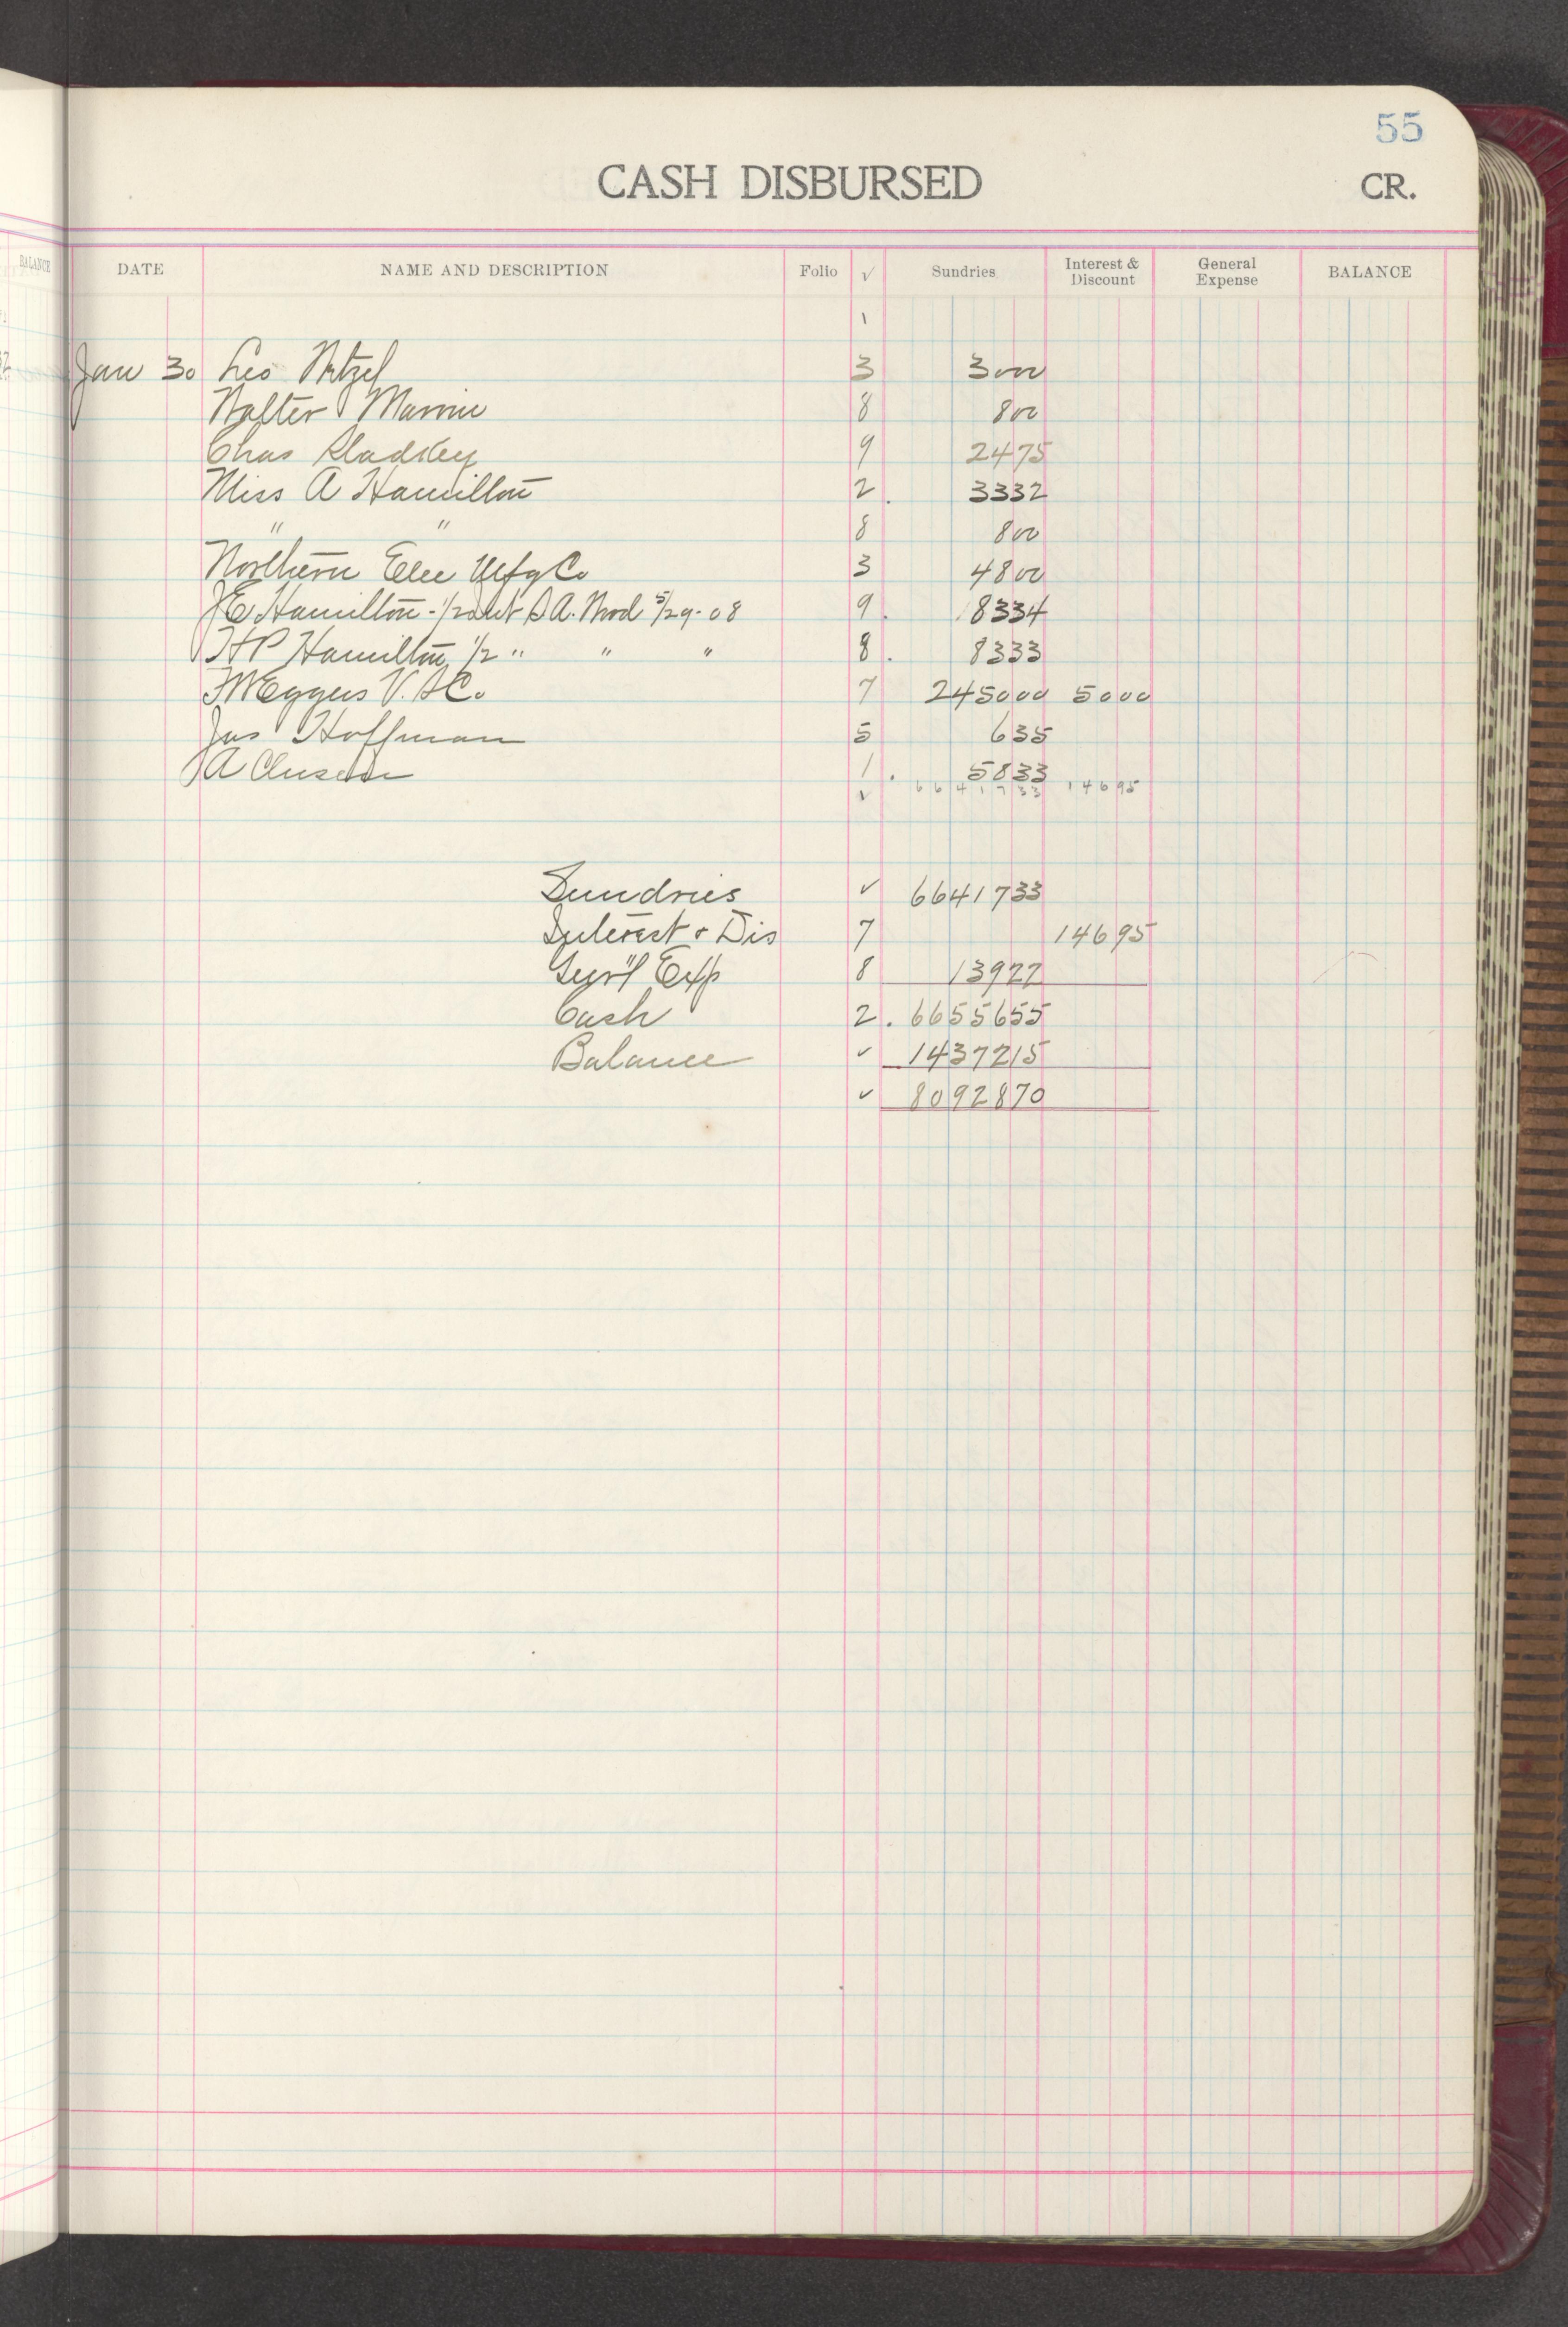 55
CASH DISBURSED CR.
BALANCE DATE NAME AND DESCRIPTION Folio √ Sundries Interest & Discount General Expense BALANCE
1
Jan 30 Leo 3 3000
Walter 8 800
Chas Sladkey 9 2475
Miss A Hamilton 2. 3332
" " 8 800
Northern Elec Mfg Co 3 4800
J E Hamilton - 1/2 A. Mod 5/29-08 9. 8334
H P Hamilton 1/2 " " " 8. 8333
F W Eggers V. & Co 7 245000 5000
Jas Hoffman 5 635
A Clusen 1. 5833
√ 6641733 14695
Sundries √ 6641733
Interest & Dis 7 14695
Gen'l Exp 8 13922
Cash 2. 6655655
Balance √ 1437215
√ 8092870